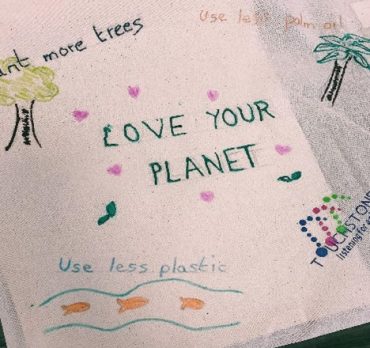 ant more trees
Use less palm oil
LOVE YOUR
PLANET
Use less plastic
TOUCHSTONE
listening for